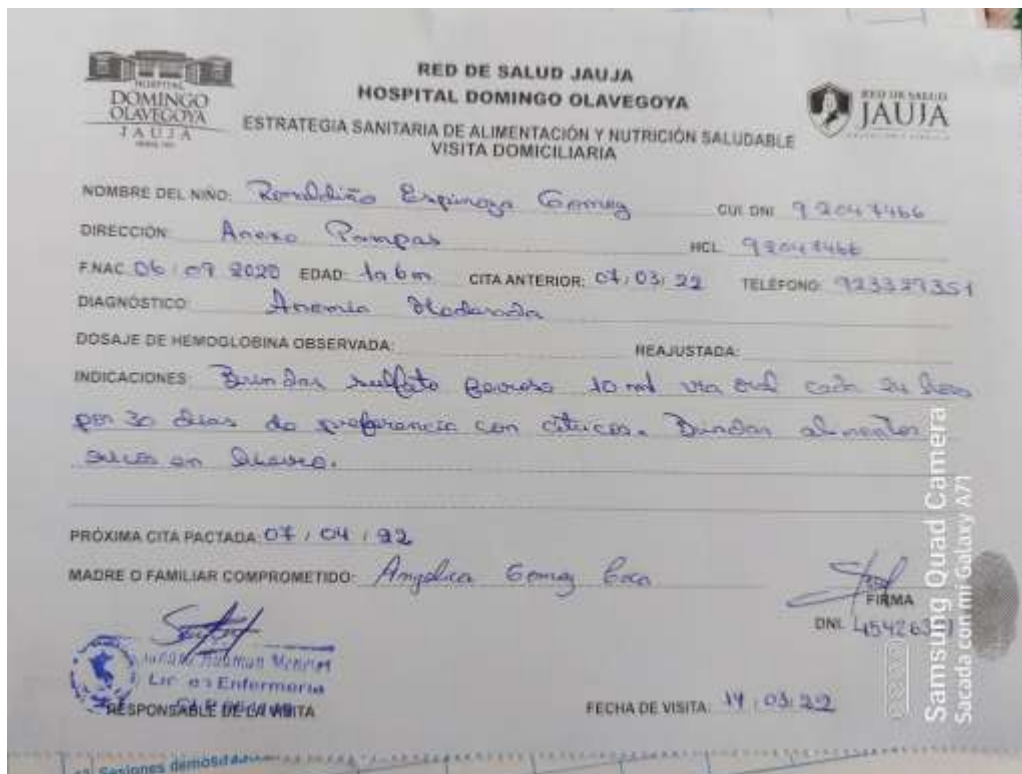 HOSPITAL
DOMINGO
OLAVEGOYA
JAUJA
RED DE SALUD JAUJA
HOSPITAL DOMINGO OLAVEGOYA
ESTRATEGIA SANITARIA DE ALIMENTACIÓN Y NUTRICIÓN SALUDABLE
VISITA DOMICILIARIA
RED DE SALUD
JAUJA
NOMBRE DEL NIÑO: Ronaldiño Espinoza Gomez CUI DNI
DIRECCIÓN: Anexo Pampas HCL
F.NAC. 06/09 2020 EDAD: 1a 6m CITA ANTERIOR: 07/03/22 TELÉFONO:
DIAGNÓSTICO: Anemia Moderada
DOSAJE DE HEMOGLOBINA OBSERVADA: REAJUSTADA:
INDICACIONES: Brindar sulfato ferroso 10 ml via oral cada 24 horas
por 30 dias de preferencia con citricos. Brindar alimentos
ricos en hierro.
PRÓXIMA CITA PACTADA: 07/04/22
MADRE O FAMILIAR COMPROMETIDO: Angelica Gomez
FIRMA
DNI.
Lic. en Enfermería
RESPONSABLE DE LA VISITA
FECHA DE VISITA: 14/03/22
Samsung Quad Camera
Sacada con mi Galaxy A71